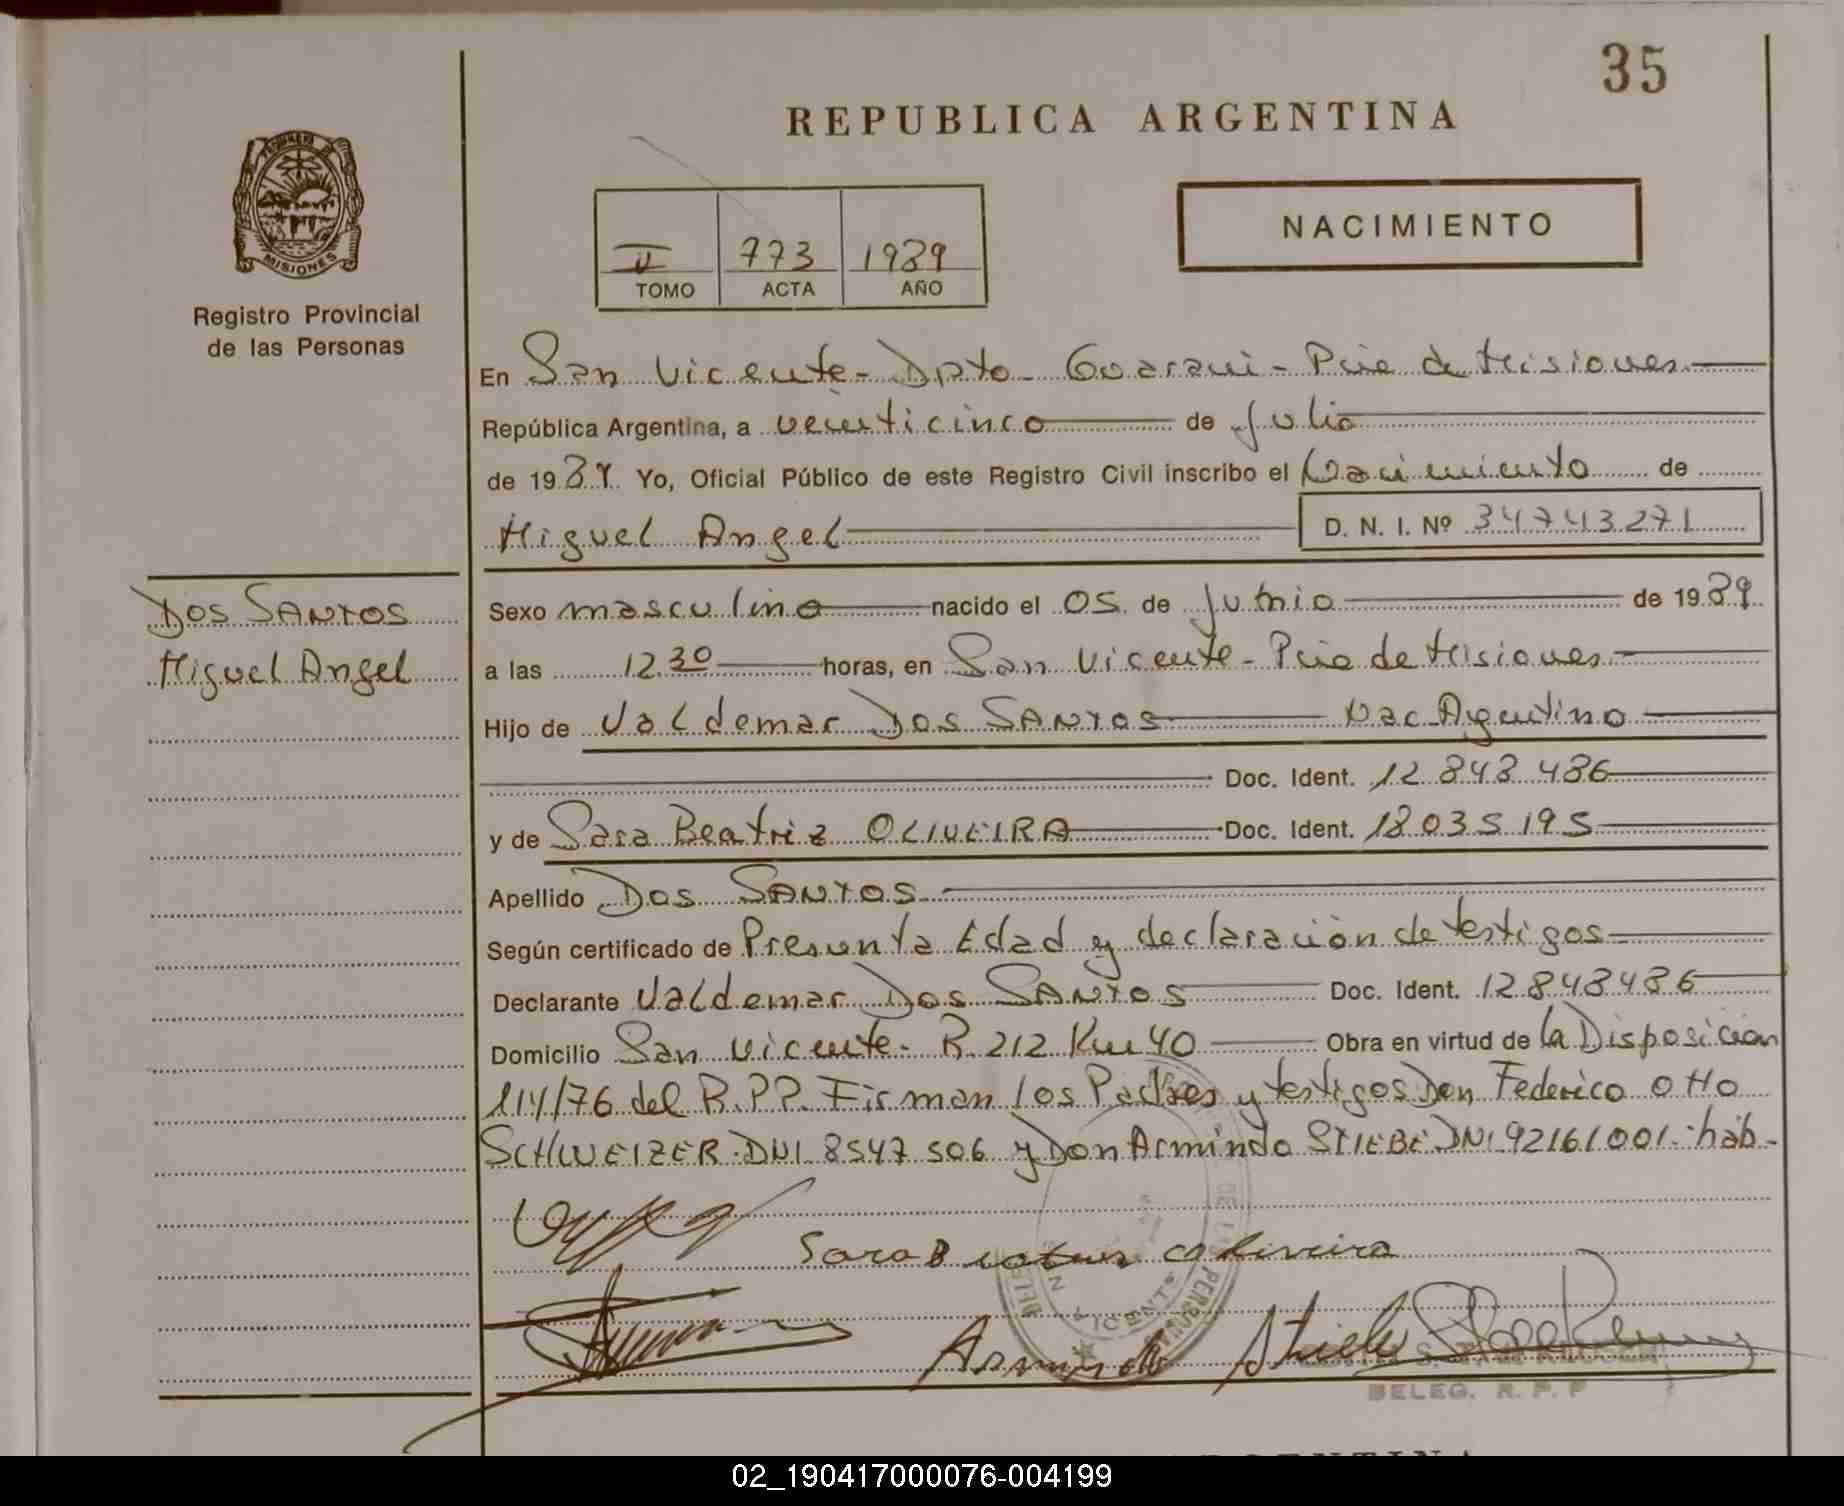 35
REPUBLICA ARGENTINA
PROVINCIA DE
MISIONES
Registro Provincial
de las Personas
NACIMIENTO
II 773 1989
TOMO ACTA AÑO
En San Vicente - Dpto Guarani - Pcia de Misiones
República Argentina, a veinticinco de Julio
de 1989 Yo, Oficial Público de este Registro Civil inscribo el Nacimiento de
Miguel Angel D. N. I. Nº 34743271
DOS SANTOS
Miguel Angel
Sexo masculino nacido el 05 de Junio de 1989
a las 12.30 horas, en San Vicente - Pcia de Misiones
Hijo de Valdemar DOS SANTOS Nac Argentino
Doc. Ident. 12 848 486
y de Sara Beatriz OLIVEIRA Doc. Ident. 18 035 195
Apellido DOS SANTOS
Según certificado de Presunta Edad y declaración de testigos
Declarante Valdemar DOS SANTOS Doc. Ident. 12848486
Domicilio San Vicente - R. 212 Km 40 Obra en virtud de la Disposicion
114/76 del R.P.P. Firman los Padres y testigos Don Federico Otto
SCHWEIZER DNI 8547506 y Don Armindo STIEBE DNI 92161001 - háb -
Sara Beatriz Oliveira
Armindo Stiebe
DELEG. R. P. P
02_190417000076-004199